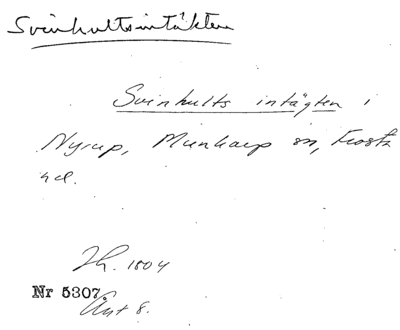 Svinhultsintäkten
Svinhults intägten i
Nyrup, Munkarp sn, Frosta
hd.
Jh. 1804
Nr 5307
Ant 8.